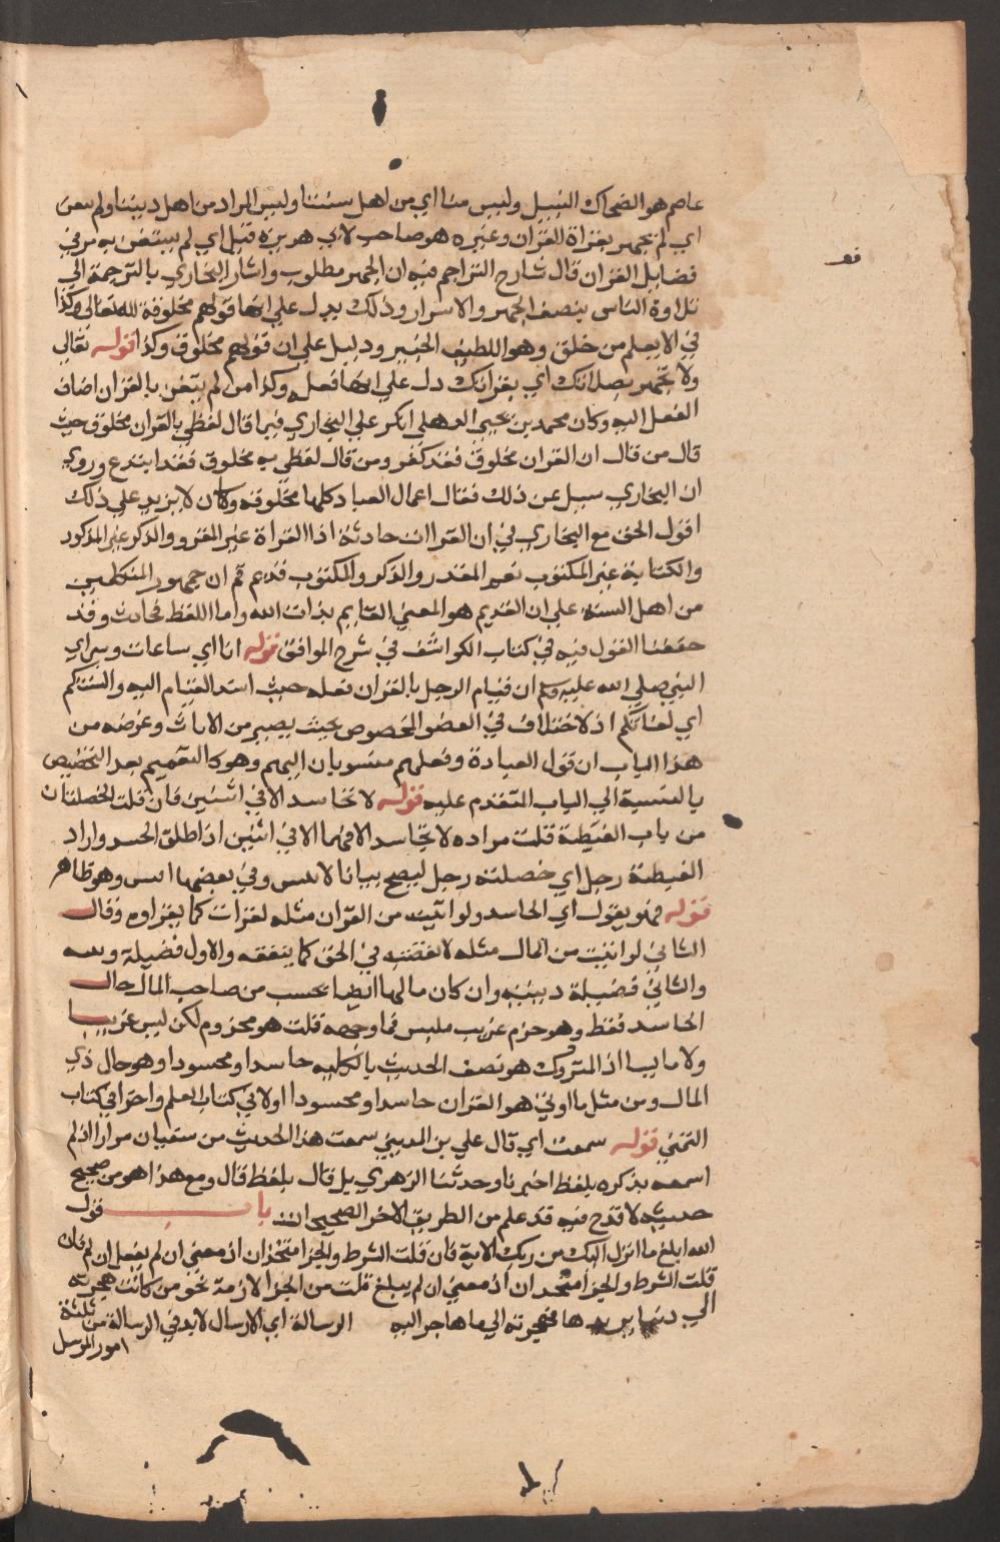 عاصم هو الضحاك النبيل وليس منا اي من اهل سنتنا وليس المراد من اهل ديننا ولم يتغن
اي لم يجهر بقراة القران وغيره هو صاحب لابي هريرة قيل اي لم يستغن به مر في
فضايل القران قال شارح التراجم فيه ان الجهر مطلوب واشار البخاري بالترجمة الي
تلاوة الناس بنصف الجهر والاسرار وذلك يدل علي انها قولهم مخلوقة لله تعالى وكذا
في الا يعلم من خلق وهو اللطيف الخبير ودليل علي ان قولهم مخلوق وكذا قوله تعالي
ولا تجهر بصلاتك اي بقراتك دل علي انها فعله وكذا من لم يتغن بالقران اضاف
الفعل اليه وكان محمد بن يحيى الذهلي انكر علي البخاري فيما قال لفظي بالقران مخلوق حيث
قال من قال ان القران مخلوق فقد كفر ومن قال لفظي به مخلوق فقد ابتدع وروي
ان البخاري سيل عن ذلك فقال اعمال العباد كلها مخلوقة وكان لا يزيد علي ذلك
اقول الحق مع البخاري في ان القراات حادثة اذ القراة غير المقرو والذكر غير المذكور
والكتابة غير المكتوب نعم المقدر والذكر والمكتوب قديم ثم ان جمهور المتكلمين
من اهل السنة علي ان القديم هو المعني القايم بذات الله واما اللفظ فحادث وقد
حققنا القول فيه في كتاب الكواشف في شرح المواقف قوله انا اي ساعات وسراي
النبي صلي الله عليه وسلم ان قيام الرجل بالقران فعله حيث اسند القيام اليه والسنتكم
اي لغاتكم اذ لا اختلاف في العضو المخصوص بحيث يصير من الايات وغرضه من
هذا الباب ان قول العبادة وفعلهم منسوبان اليهم وهو كالتعميم بعد التخصيص
بالنسبة الي الباب المتقدم عليه قوله لا تحاسد الا في اثنتين فان قلت الخصلتان
من باب الغبطة قلت مراده لا تحاسد الا فيهما الا في اثنين اذ اطلق الحسد واراد
الغبطة رجل اي خصلته رجل ليصح بيانا لاثنين وفي بعضها اثنين وهو ظاهر
قوله فهو يقول اي الحاسد ولو اتيت من القران مثله لقرات كما يقراوه وقال
الثاني لو اتيت من المال مثله لانفقته في الحق كما ينفقه والاول فضيلة
والثاني فضيلة دينية وان كان مالها ايضا بحسب من صاحب المال حال
الحاسد فقط وهو خرم غريب ملبس فما وجهه قلت هو مخروم لكن ليس غريبا
ولا ملبسا اذ المتروك هو نصف الحديث بالكلية حاسدا ومحسودا وهو حال ذي
المال ومن مثل ما اوتي هو القران حاسدا ومحسودا اولا في كتاب العلم واخرا في كتاب
التمني قوله سمعت اي قال علي بن المديني سمعت هذا الحديث من سفيان مرارا اذ لم
اسمعه يذكره بلفظ اخبرنا وحدثنا الزهري بل قال بلفظ قال ومع هذا هو من صحيح
حديثه لا قدح فيه قد علم من الطريق الاخر الصحيح باب قول
الله ابلغ ما انزل اليك من ربك الاية فان قلت الشرط والجزا متحدان اذ معني ان لم يفعل ان لم
قلت الشرط والجزا متحدان اذ معني ان لم يبلغ قلت من الجزا لازمة نحو من كانت هجرته
الي دنيا يريدها فهجرته الي ما هاجر اليه الرسالة اي الارسال لابد في الرسالة من ثلثة
امور المرسل